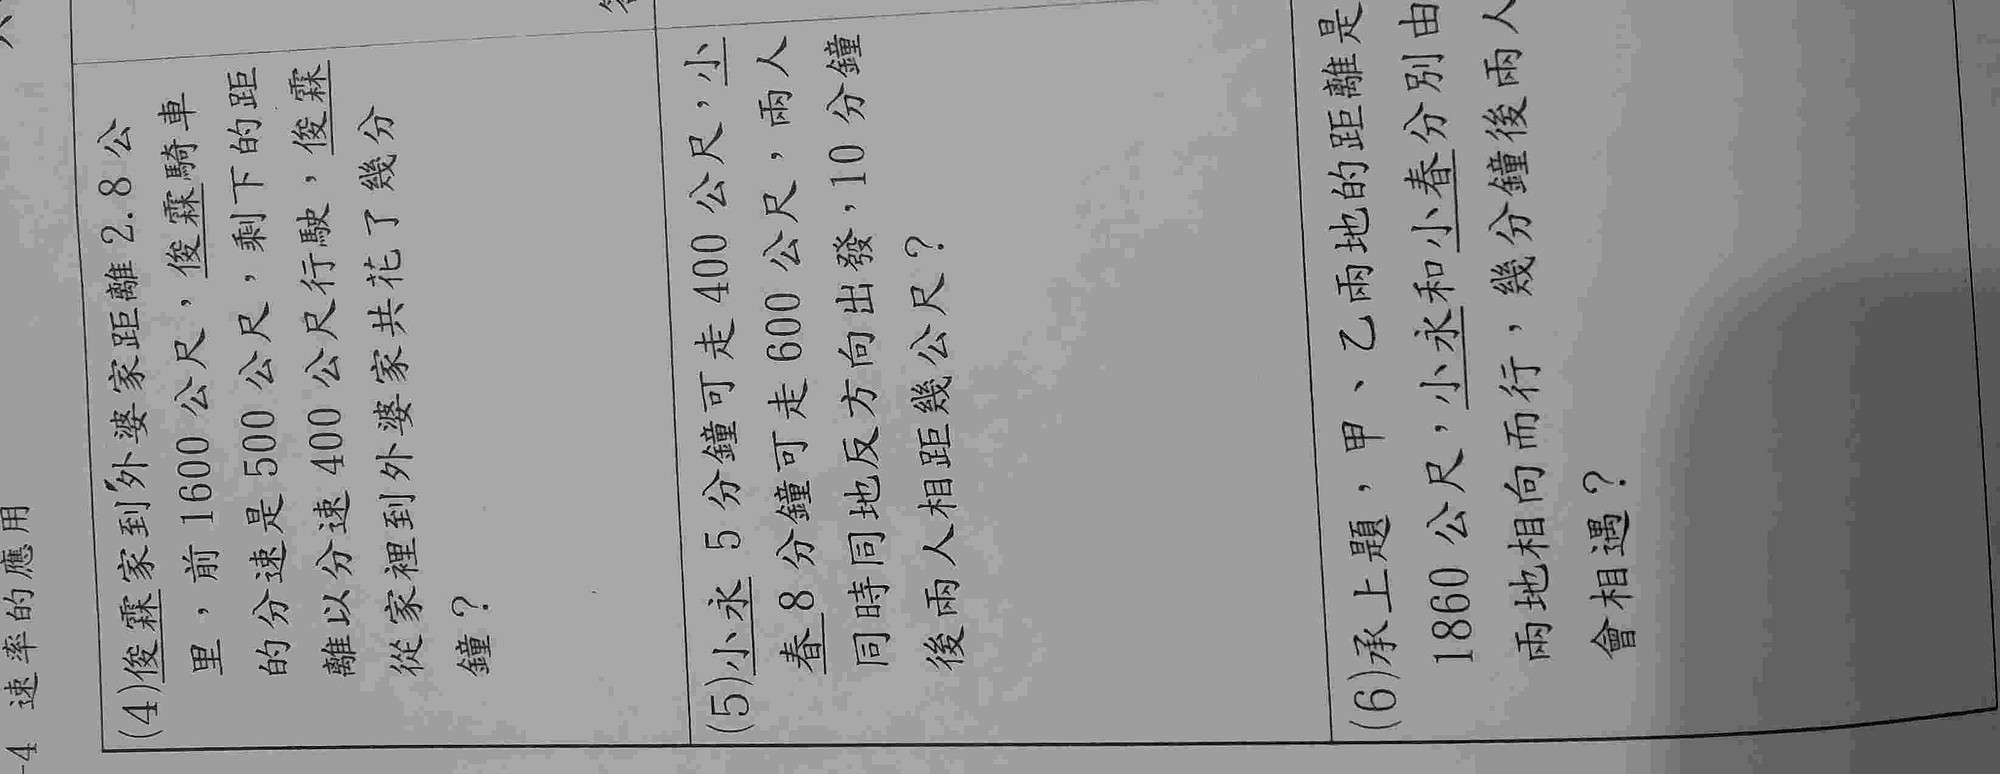 -4 速率的應用
(4)俊霖家到外婆家距離2.8公
里，前1600公尺，俊霖騎車
的分速是500公尺，剩下的距
離以分速400公尺行駛，俊霖
從家裡到外婆家共花了幾分
鐘？
(5)小永5分鐘可走400公尺，小
春8分鐘可走600公尺，兩人
同時同地反方向出發，10分鐘
後兩人相距幾公尺？
(6)承上題，甲、乙兩地的距離是
1860公尺，小永和小春分別由
兩地相向而行，幾分鐘後兩人
會相遇？